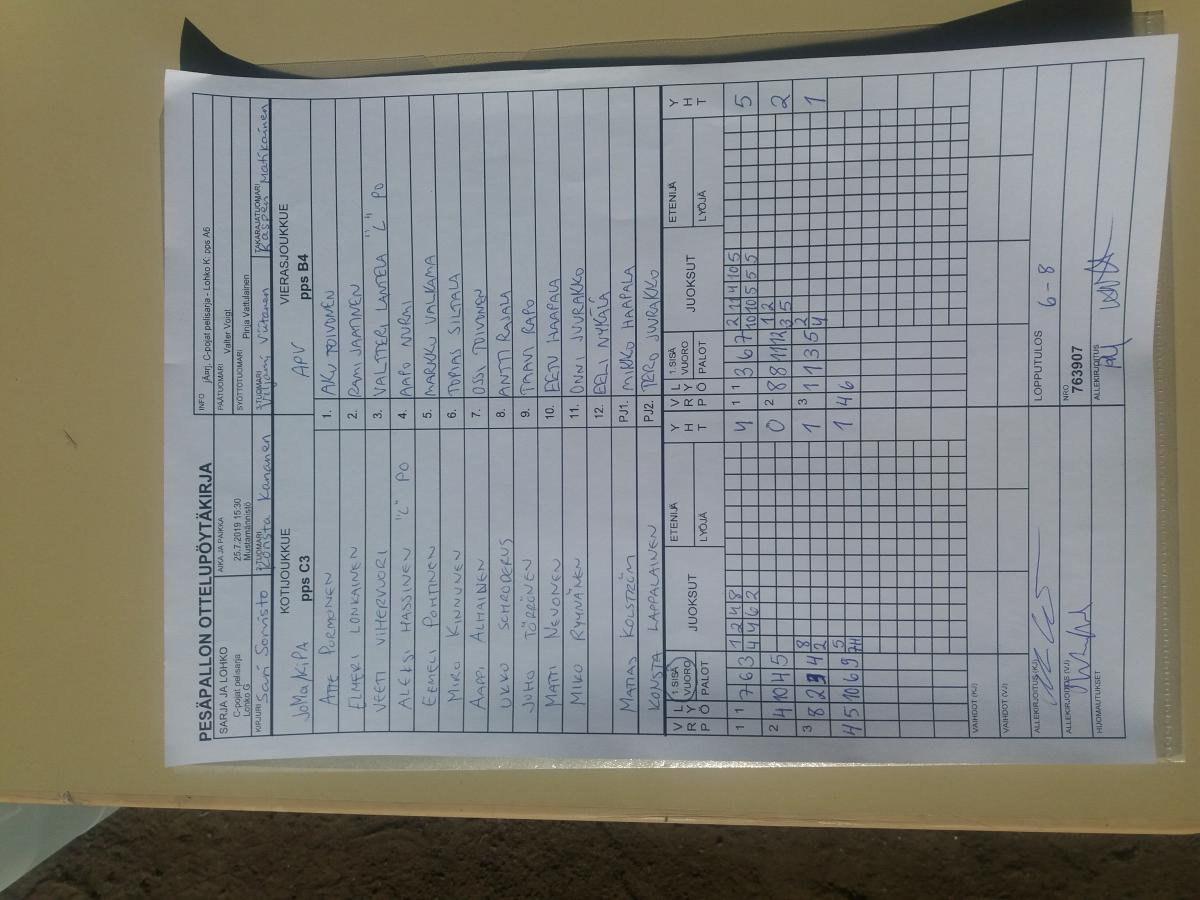 PESÄPALLON OTTELUPÖYTÄKIRJA
INFO jÄorj. C-pojat pelisarja - Lohko K: pps A6
SARJA JA LOHKO
C-pojat pelisarja
Lohko G
AIKA JA PAIKKA
25.7.2019 15:30
Mustamännistö
PÄÄTUOMARI Valter Voigt
SYÖTTÖTUOMARI Pinja Vattulainen
KIRJURI Sari Sormisto
2-TUOMARI Konsta Kananen
3-TUOMARI Viljami Viitanen
TAKARAJATUOMARI Kasperi Matikainen
KOTIJOUKKUE
JoMa/KiPA pps C3
VIERASJOUKKUE
APV pps B4
ATTE PORMONEN 1. AKU TOIVONEN
ELMERI LONKAINEN 2. RAMI JAATINEN
VEETI VIHERVUORI 3. VALTTERI LANTELA "L" PO
ALEKSI HASSINEN "L" PO 4. AAPO NURMI
EEMELI POHTINEN 5. MARKKU VALKAMA
MIRO KINNUNEN 6. TOPIAS SILTALA
AAPPI ALHAINEN 7. OSSI TOIVONEN
UKKO SCHRODERUS 8. ANTTI RAJALA
JUHO TÖRRÖNEN 9. TAAVI RAPO
MATTI NEVONEN 10. EETU HAAPALA
MIKO RYYNÄNEN 11. ONNI JUURAKKO
12. EELI NYKÄLÄ
MATIAS KOLSTRÖM PJ1. MIKKO HAAPALA
KONSTA LAPPALAINEN PJ2. TERO JUURAKKO
V L 1.SISÄ JUOKSUT ETENIJÄ Y V L 1.SISÄ JUOKSUT ETENIJÄ Y
R Y VUORO H R Y VUORO H
P Ö PALOT LYÖJÄ T P Ö PALOT LYÖJÄ T
1 1 7 6 3 1 2 4 8 4 1 1 3 6 7 2 11 4 10 5 5
4 4 6 2 10 10 5 5 5
2 4 10 4 5 0 2 8 8 11 12 1 2 2
3 5
3 8 2 9 4 8 1 3 1 1 3 5 2 1
2 4
4 5 10 6 9 5 1 4 6
7H 1
VAIHDOT (KJ)
VAIHDOT (VJ)
ALLEKIRJOITUS (KJ)
LOPPUTULOS 6-8
ALLEKIRJOITUS (VJ)
NRO
763907
HUOMAUTUKSET
ALLEKIRJOITUS